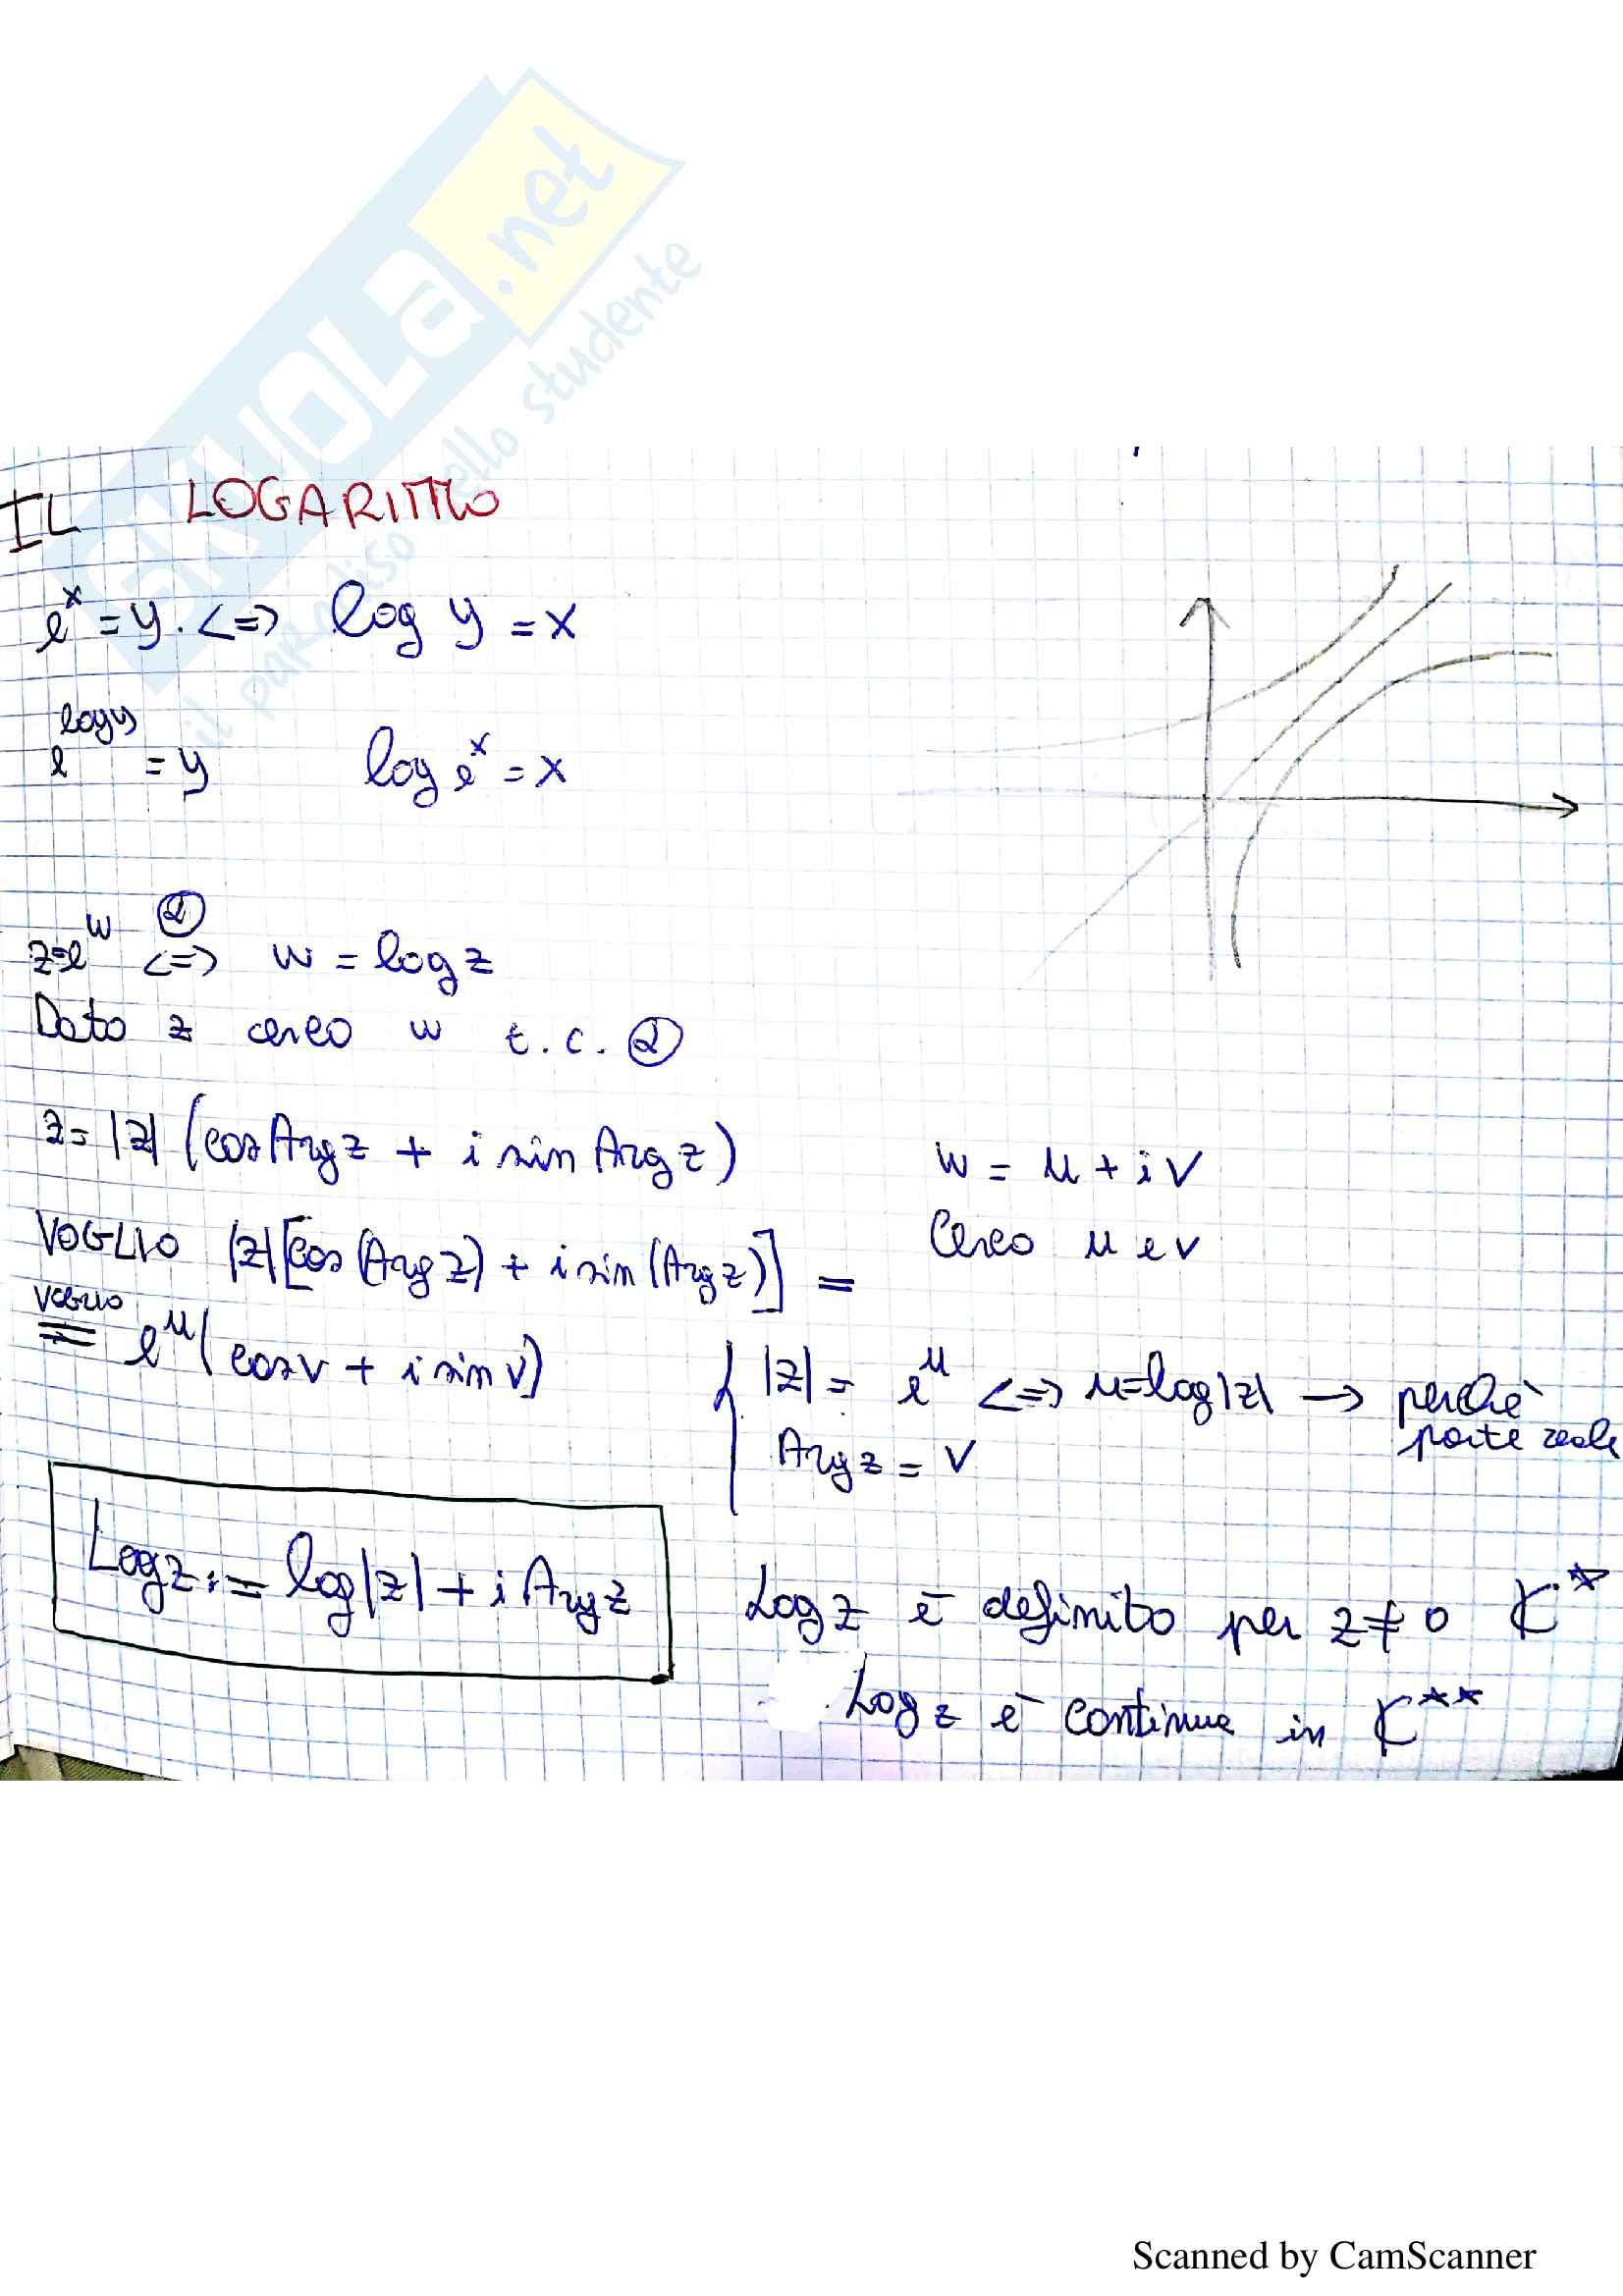 SKUOLA.net
il paradiso dello studente
IL LOGARITMO
e^x = y. <=> log y = x
e^log y = y    log e^x = x
z=e^w <=>① w = log z
Dato z cerco w t.c. ①
z= |z| (cos Arg z + i sin Arg z)    w = u + i v
VOGLIO |z|[cos (Arg z) + i sin (Arg z)] =    Cerco u e v
VOGLIO = e^u (cos v + i sin v)
{ |z| = e^u <=> u=log|z| → perchè parte reale
Arg z = v
Log z := log|z| + i Arg z
Log z è definito per z ≠ 0 ℂ*
Log z è continua in ℂ**
Scanned by CamScanner